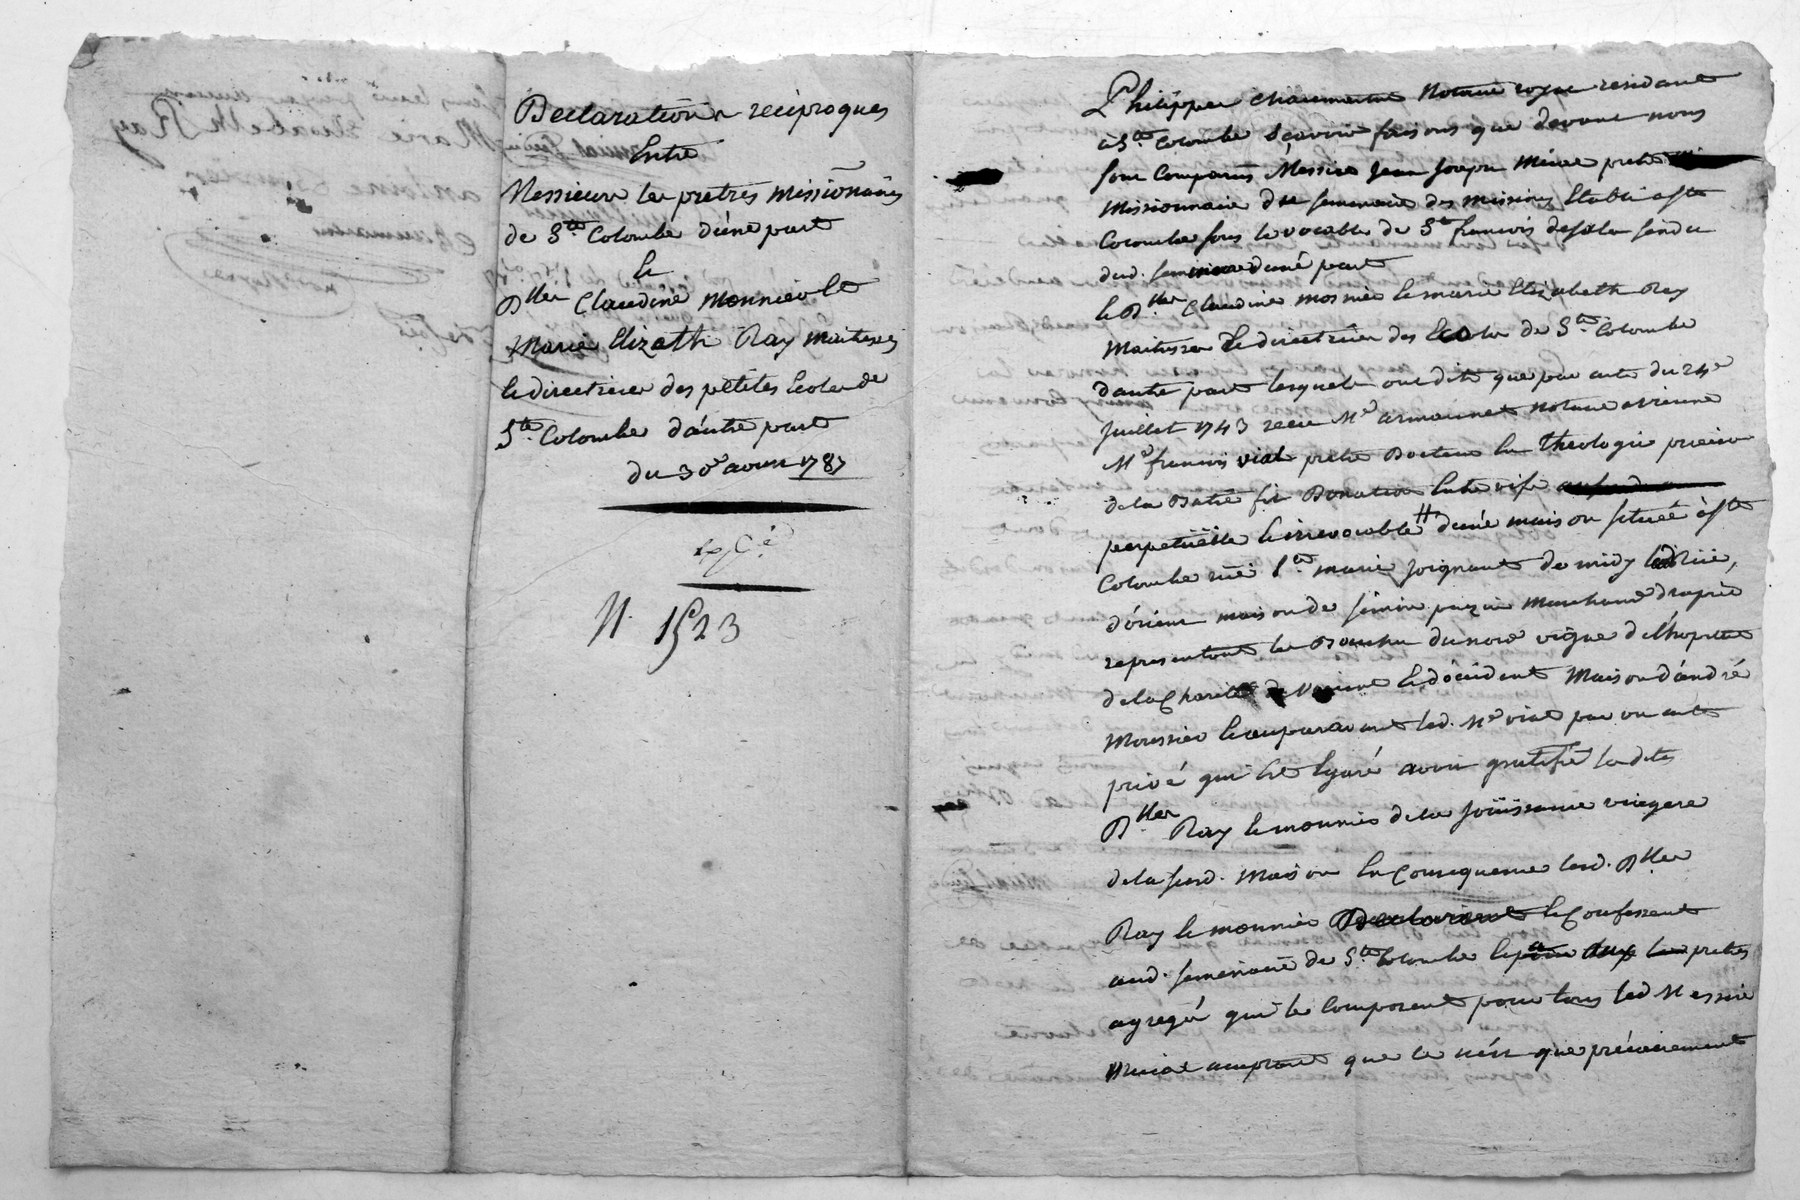 Declaration reciproques
Entre
Messieurs les pretres missionnaires
de Ste Colombe d'une part
&
Dlles Claudine Monnier Et
Marie Elizath Ray Maitresses
& directrices des petites Ecoles de
Ste Colombe d'autre part
du 30e aoust 1787
expé
N. 1523
Philippe Chaumartin Notaire royal residant
à Ste Colombe Sçavoir faisons que devant nous
sont Comparus Messire Jean Joseph pretre
Missionnaire du semenaire des missions Etabli à Ste
Colombe sous le vocable de St françois de sales sindic
dud. semenaire d'une part
& Dlles Claudine Monnier & marie Elizabeth Ray
Maitresses & directrices des Ecoles de Ste Colombe
d'autre part lesquels ont dit que par acte du 24e
Juillet 1743 recu Me armannet Notaire a vienne
Me françois vial pretre Docteur En theologie prieur
de la Batie fit Donation Entre vifs
perpetuelle & irrevocable d'une maison située à Ste
Colombe rue Ste marie joignant de midy ladite rue,
d'orient maison de simon Marchand drapié
representant les du nord vigne de l'hopital
de la Charité de vienne & d'occident Maison d'andré
Moussier & auparavant led. Me vial par un acte
privé qui Est Egaré avoir gratifié lesdites
Dlles Ray & monnier de la joüissance viagere
de la susd. Maison En Consequence lesd. Dlles
Ray & monnier Declarent & Confessent
aud. semenaire de Ste Colombe & pretres
agregés qui le Composent pour tous led. Messire
acceptant que ce n'est que précairement